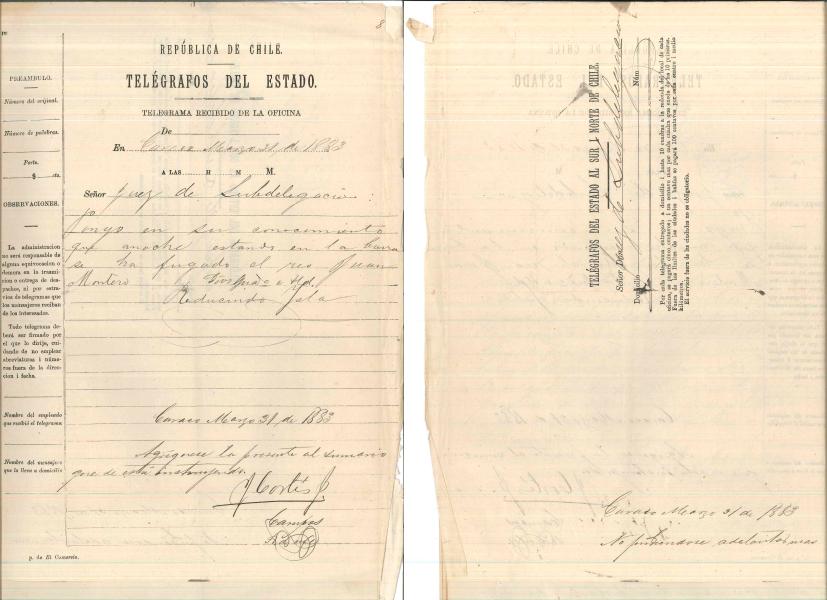 8
REPÚBLICA DE CHILE.
TELÉGRAFOS DEL ESTADO.
TELEGRAMA RECIBIDO DE LA OFICINA
De
En Marzo 31 de 1883
A LAS H M M.
Señor Juez de Subdelegacion:
Pongo en su conocimiento
que anoche estando en la barra
se ha fugado el reo Juan
Montero
PREAMBULO.
Número del orijinal.
Número de palabras.
Porte.
$ cts.
OBSERVACIONES.
La administracion
no será responsable de
alguna equivocacion o
demora en la trasmi-
sion o entrega de des-
pachos, ni por estra-
vios de telegramas que
los mensajeros reciban
de los interesados.
Todo telegrama de-
berá ser firmado por
el que lo dirija, cui-
dando de no emplear
abreviaturas i núme-
ros fuera de la direc-
cion i fecha.
Nombre del empleado
que recibió el telegrama:
Nombre del mensajero
que la lleva a domicilio
Marzo 31, de 1883
Agréguese la presente al sumario
que se está instruyendo.
J Cortés
Campos
p. de El Comercio.
TELÉGRAFOS DEL ESTADO AL SUR I NORTE DE CHILE.
Señor Don Juez de Subdelegacion
Domicilio Núm
Por cada telegrama entregado a domicilio i hasta 10 cuadras a la redonda del local de cada
oficina, se pagará cinco centavos; i un centavo mas por cada cuadra que exceda de las 10 primeras.
Fuera de los límites de las ciudades i habido se pagará 100 centavos por cada centro i medio
kilómetros.
El servicio fuera de las ciudades no es obligatorio.
Marzo 31 de 1883
No pudiéndose adelantar mas